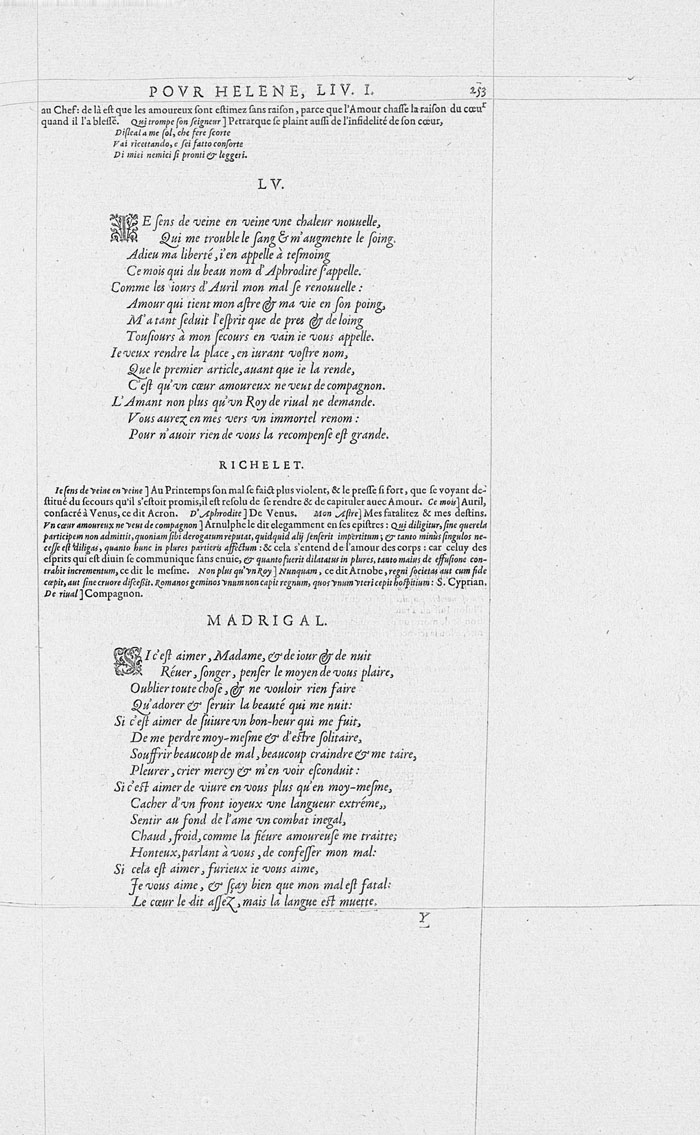 POVR HELENE, LIV. I. 253
au Chef: de là est que les amoureux sont estimez sans raison, parce que l'Amour chasse la raison du cœur
quand il l'a blessé. Qui trompe son seigneur ] Petrarque se plaint aussi de l'infidelité de son cœur,
Disleal a me sol, che fere scorte
Vai ricettando, e sei fatto consorte
Di miei nemici si pronti & leggeri.
LV.
IE sens de veine en veine vne chaleur nouuelle,
Qui me trouble le sang & m'augmente le soing.
Adieu ma liberté, i'en appelle à tesmoing
Ce mois qui du beau nom d'Aphrodite s'appelle.
Comme les iours d'Auril mon mal se renouuelle :
Amour qui tient mon astre & ma vie en son poing,
M'a tant seduit l'esprit que de pres & de loing
Tousiours à mon secours en vain ie vous appelle.
Ie veux rendre la place, en iurant vostre nom,
Que le premier article, auant que ie la rende,
C'est qu'vn cœur amoureux ne veut de compagnon.
L'Amant non plus qu'vn Roy de riual ne demande.
Vous aurez en mes vers vn immortel renom :
Pour n'auoir rien de vous la recompense est grande.
RICHELET.
Ie sens de veine en veine ] Au Printemps son mal se faict plus violent, & le presse si fort, que se voyant de-
stitué du secours qu'il s'estoit promis, il est resolu de se rendre & de capituler auec Amour. Ce mois ] Auril,
consacré à Venus, ce dit Acron. D'Aphrodite ] De Venus. Mon Astre ] Mes fatalitez & mes destins.
Vn cœur amoureux ne veut de compagnon ] Arnulphe le dit elegamment en ses epistres : Qui diligitur, sine querela
participem non admittit, quoniam sibi derogatum reputat, quidquid alij senserit impertitum ; & tanto minùs singulos ne-
cesse est diligas, quanto hunc in plures partieris affectum : & cela s'entend de l'amour des corps : car celuy des
esprits qui est diuin se communique sans enuie, & quanto fuerit dilatatus in plures, tanto maius de effusione con-
trahit incrementum, ce dit le mesme. Non plus qu'vn Roy ] Nunquam, ce dit Arnobe, regni societas aut cum fide
cœpit, aut sine cruore discessit. Romanos geminos vnum non capit regnum, quos vnum vteri cepit hospitium : S. Cyprian.
De riual ] Compagnon.
MADRIGAL.
SI c'est aimer, Madame, & de iour & de nuit
Réuer, songer, penser le moyen de vous plaire,
Oublier toute chose, & ne vouloir rien faire
Qu'adorer & seruir la beauté qui me nuit:
Si c'est aimer de suiure vn bon-heur qui me fuit,
De me perdre moy-mesme & d'estre solitaire,
Souffrir beaucoup de mal, beaucoup craindre & me taire,
Pleurer, crier mercy & m'en voir esconduit :
Si c'est aimer de viure en vous plus qu'en moy-mesme,
Cacher d'vn front ioyeux vne langueur extréme,,
Sentir au fond de l'ame vn combat inegal,
Chaud, froid, comme la fiéure amoureuse me traitte;
Honteux, parlant à vous, de confesser mon mal:
Si cela est aimer, furieux ie vous aime,
Je vous aime, & sçay bien que mon mal est fatal:
Le cœur le dit assez, mais la langue est muette.
Y